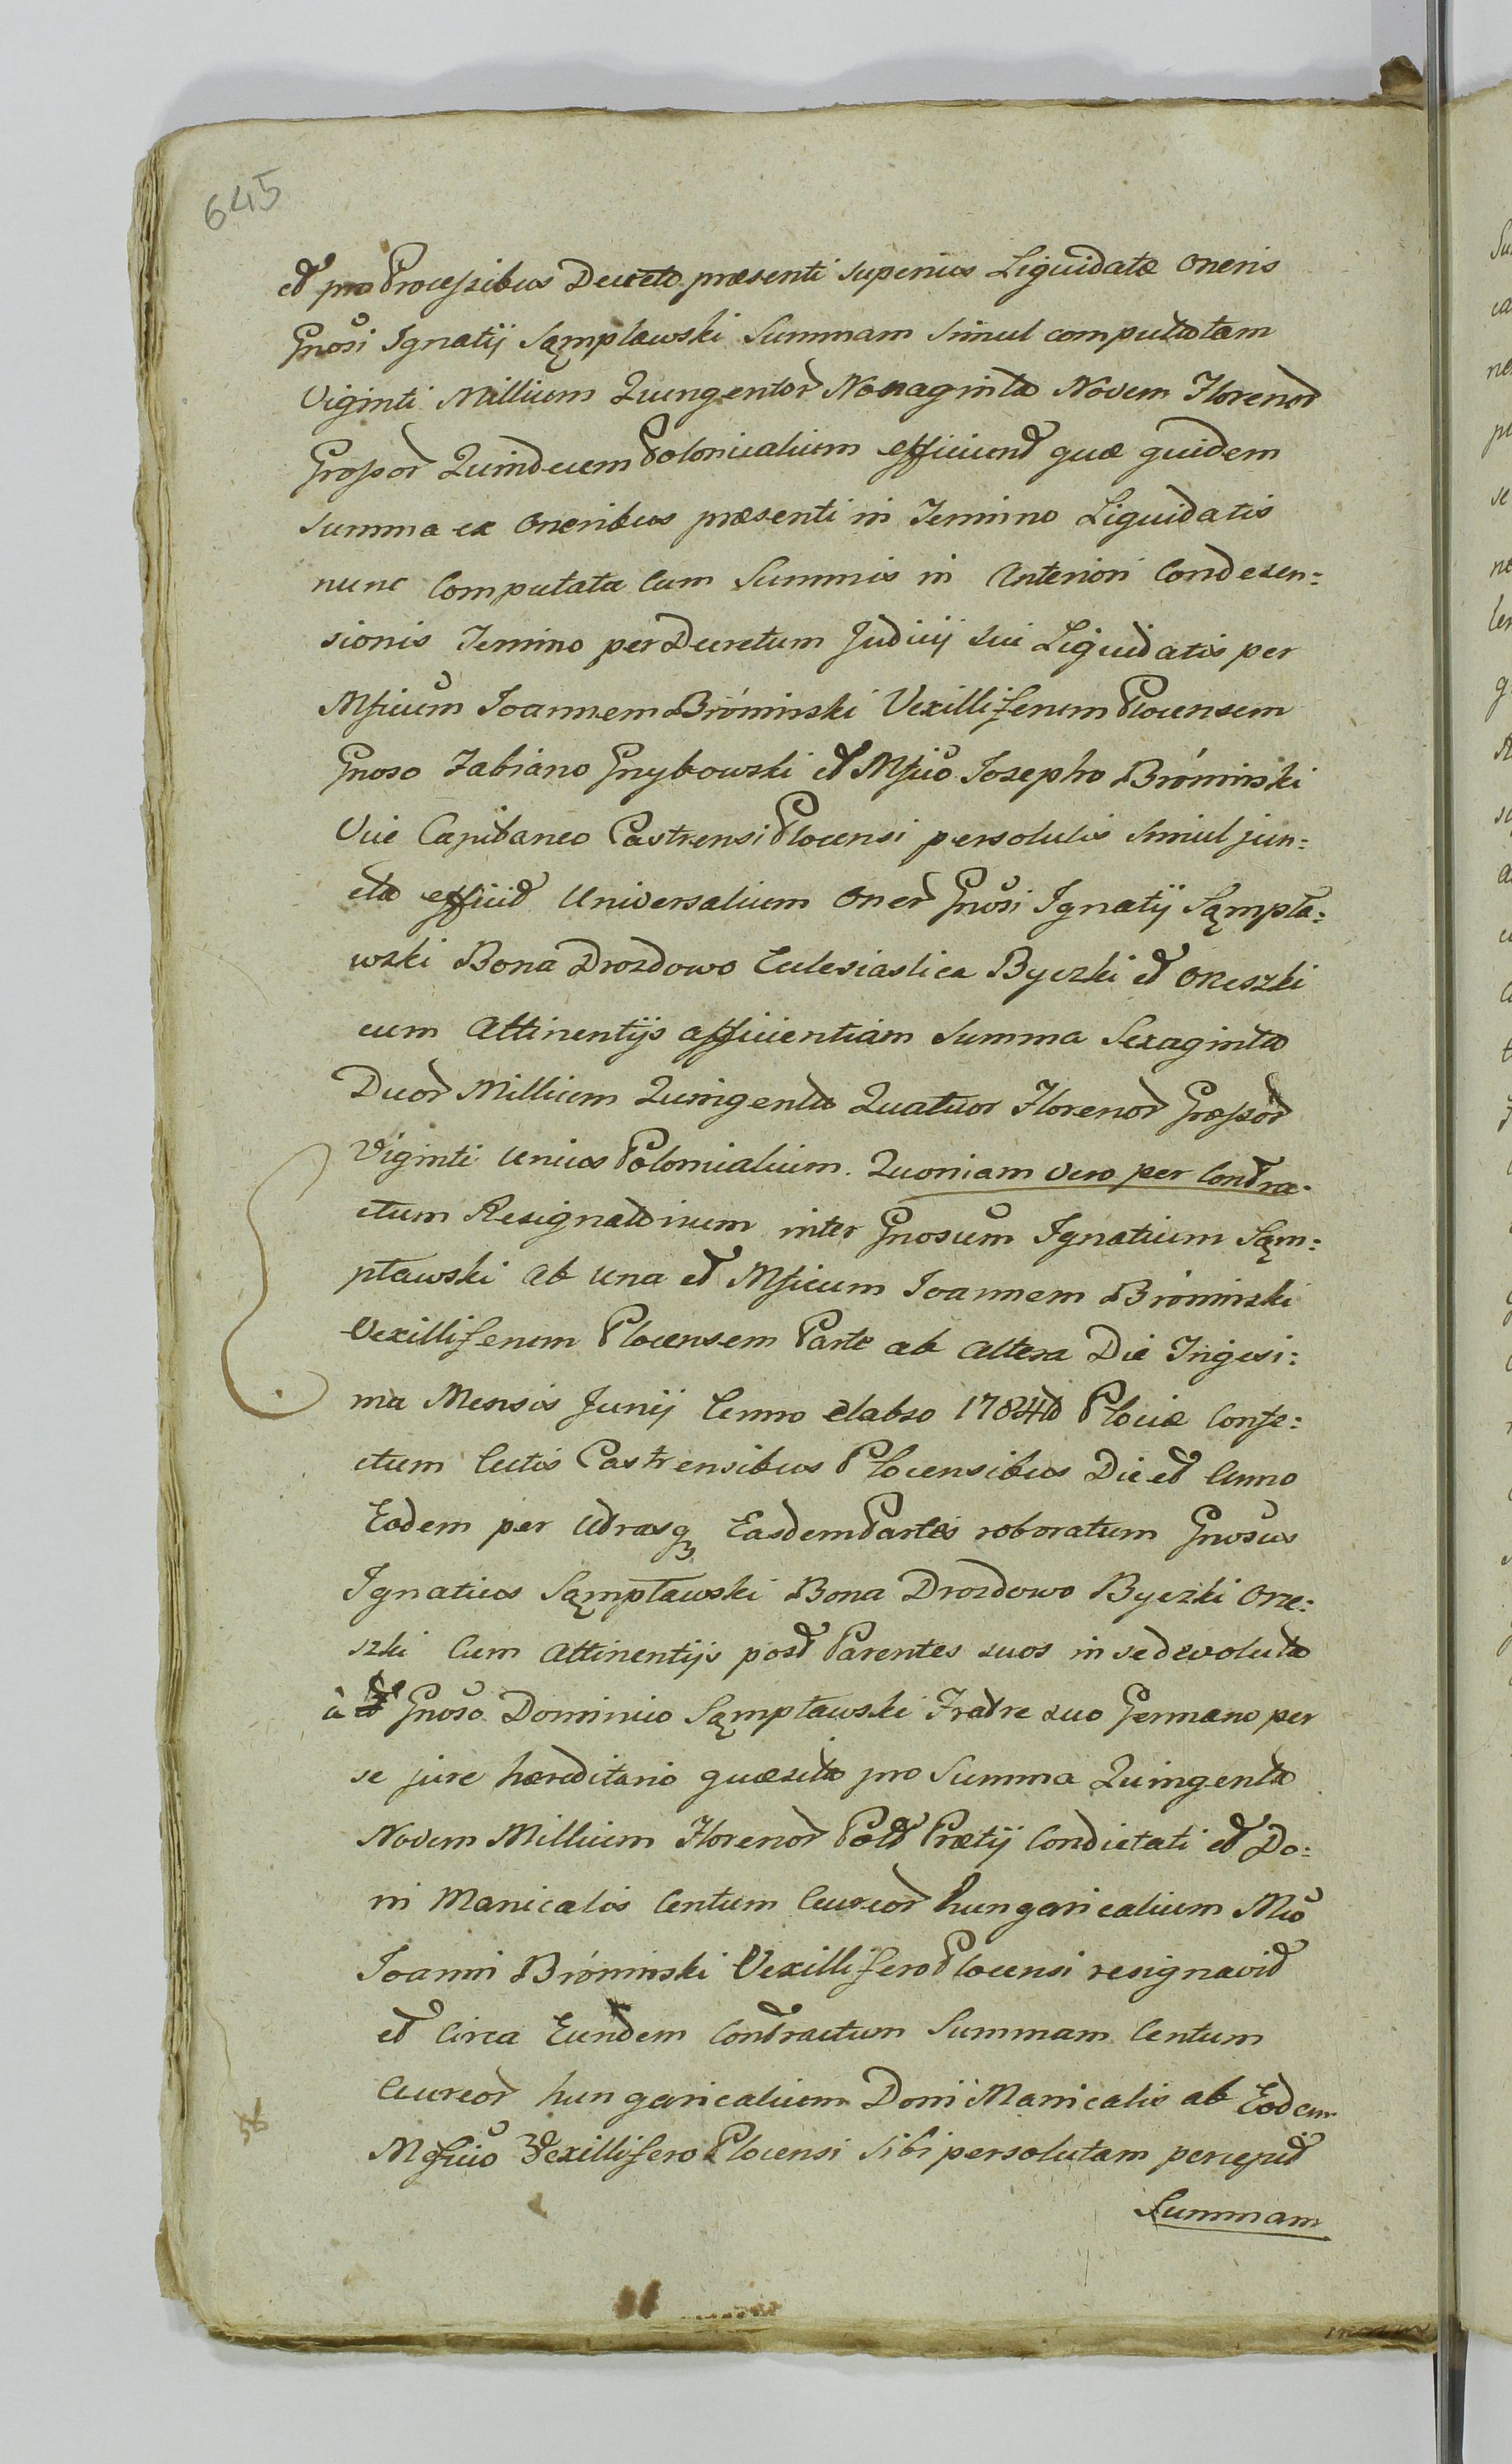 645
et pro Processibus Decreto præsenti superius Liquidatæ oneris
Gnosi Ignatij Sąmpławski Summam simul computatam
Viginti Millium Quingentor Nonaginta Novem Florenor
Grossor Quindecem Polonicalium efficiunt quæ quidem
summa ex oneribus præsenti in Termino Liquidatis
nunc Computata Cum Summis in Anteriori Condesen:
sionis Termino per Decretum Judicij sui Liquidatis per
Mficum Joannem Brómirski Vexilliferum Plocensem
Gnoso Fabiano Grzybowski et Mfico Josepho Brómirski
Vice Capitaneo Castrensi Plocensi persolutis simul jun:
cta efficit Universalium oner Gnosi Ignatij Sąmpła:
wski Bona Drozdowo Ecclesiastica Byczki et Orzeszki
cum Attinentijs afficientiam summa Sexaginta
Duor Millium Quingenta Quatuor Florenor Grossor
Viginti Unius Polonicalium. Quoniam vero per Contra:
ctum Resignatorium inter Gnosum Ignatium Sąm:
pławski ab una et Mficum Joannem Brómirski
Vexilliferum Plocensem Parte ab altera Die Trigesi:
ma Mensis Junij Anno elabso 1784to Plociæ Confe:
ctum Actis Castrensibus Plocensibus Die et Anno
Eodem per Utrasq Easdem Partes roboratum Gnosus
Ignatius Sąmpławski Bona Drozdowo Byczki Orze:
szki Cum Attinentijs post Parentes suos in se devoluta
à Gnoso Dominico Sąmpławski Fratre suo Germano per
se jure hæreditario quæsita pro Summa Quingenta
Novem Millium Florenor Pold Prætij Condictati et Do:
ni Manicalis Centum Aureor hungaricalium Mco
Joanni Brómirski Vexillifero Plocensi resignavit
et Circa Eundem Contractum Summam Centum
Aureor hungaricalium Doni Manicalis ab Eodem
Mfico Vexillifero Plocensi sibi persolutam percepit
Summam